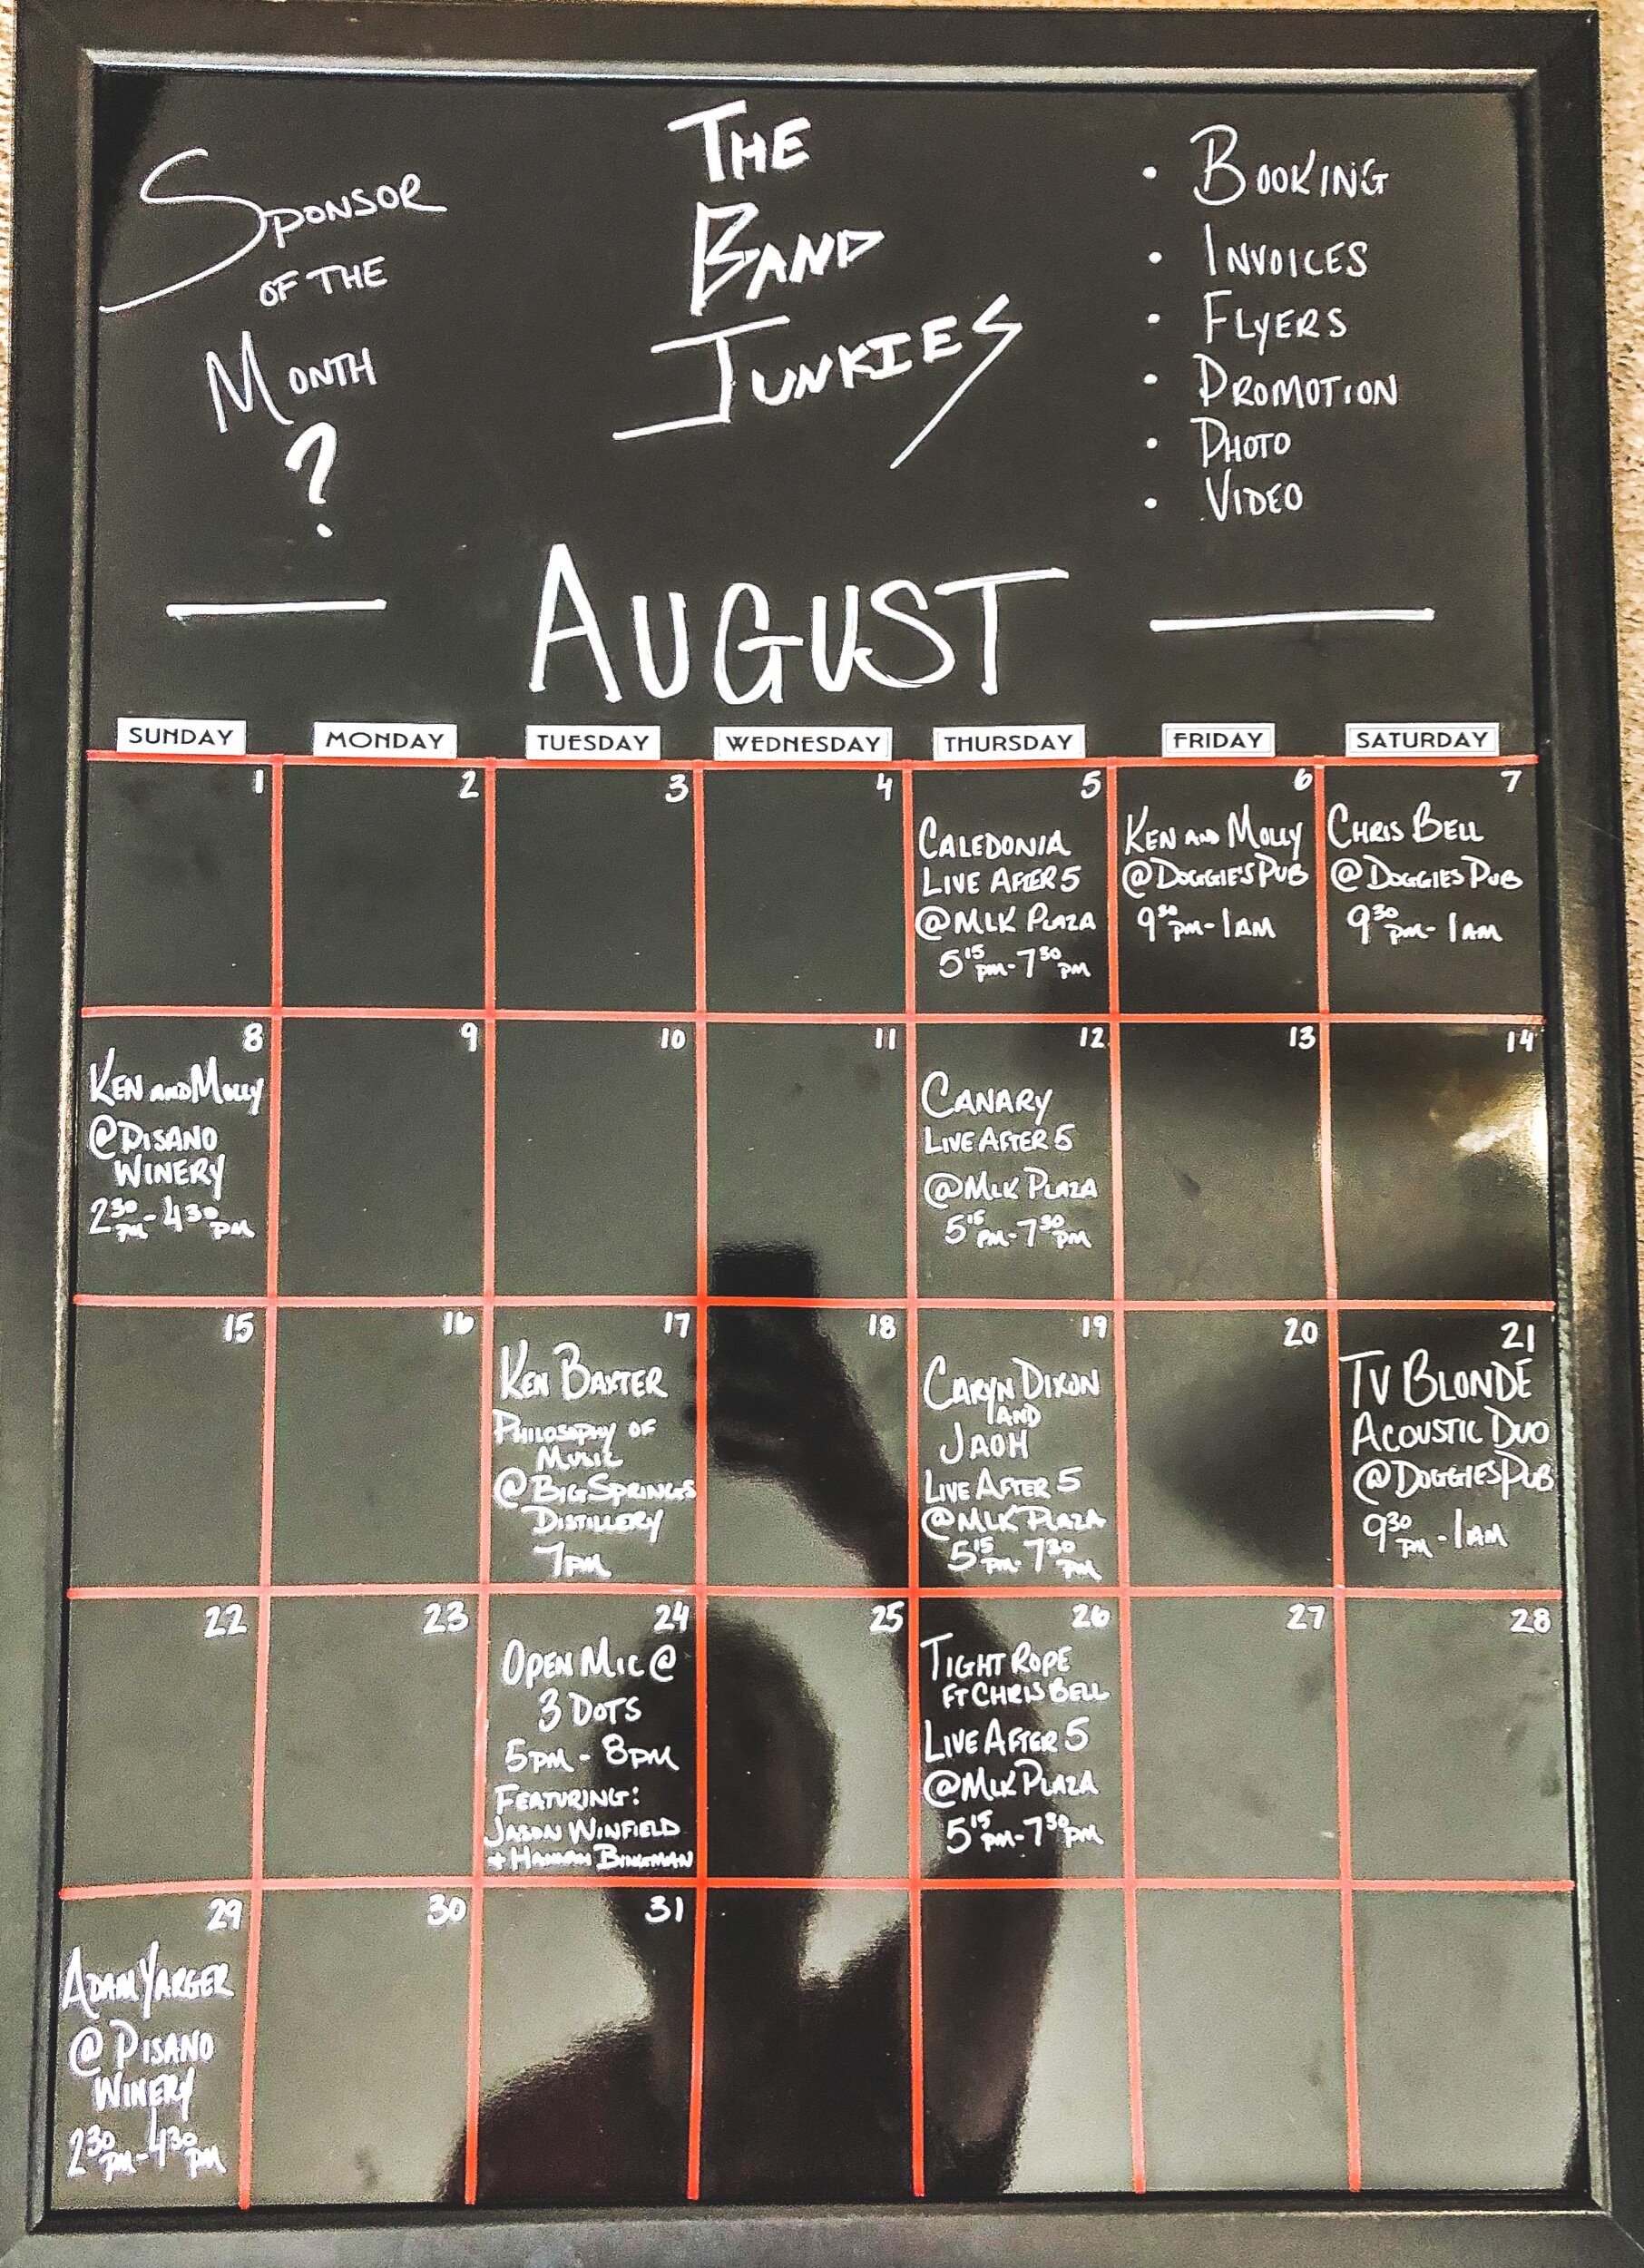 SPONSOR
OF THE
MONTH
?
THE
BAND
JUNKIES
• BOOKING
• INVOICES
• FLYERS
• PROMOTION
• PHOTO
• VIDEO
AUGUST
SUNDAY MONDAY TUESDAY WEDNESDAY THURSDAY FRIDAY SATURDAY
1
2
3
4
5
CALEDONIA
LIVE AFTER 5
@MLK PLAZA
5:15 PM-7:30 PM
6
KEN AND MOLLY
@DOGGIE'S PUB
9:30 PM-1AM
7
CHRIS BELL
@DOGGIES PUB
9:30 PM-1AM
8
KEN AND MOLLY
@PISANO
WINERY
2:30 PM-4:30 PM
9
10
11
12
CANARY
LIVE AFTER 5
@MLK PLAZA
5:15 PM-7:30 PM
13
14
15
16
17
KEN BAXTER
PHILOSOPHY OF
MUSIC
@BIG SPRINGS
DISTILLERY
7PM
18
19
CARYN DIXON
AND
JAOH
LIVE AFTER 5
@MLK PLAZA
5:15 PM-7:30 PM
20
21
TV BLONDE
ACOUSTIC DUO
@DOGGIES PUB
9:30 PM-1AM
22
23
24
OPEN MIC @
3 DOTS
5PM - 8PM
FEATURING:
JASON WINFIELD
+ HANNAH BINGMAN
25
26
TIGHT ROPE
FT CHRIS BELL
LIVE AFTER 5
@MLK PLAZA
5:15 PM-7:30 PM
27
28
29
ADAM YARGER
@ PISANO
WINERY
2:30 PM-4:30 PM
30
31